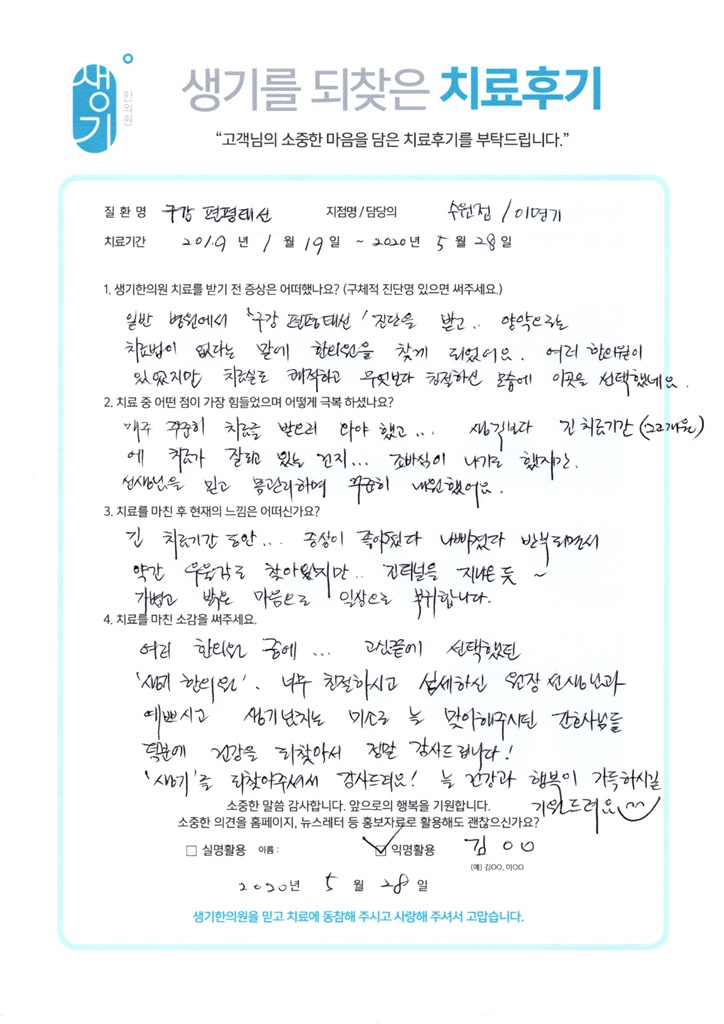 생기
한의원
생기를 되찾은 치료후기
“고객님의 소중한 마음을 담은 치료후기를 부탁드립니다.”
질 환 명 구강 편평태선 지점명 / 담당의 수원점 / 이명기
치료기간 2019 년 1 월 19 일 ~ 2020 년 5 월 28 일
1. 생기한의원 치료를 받기 전 증상은 어떠했나요? (구체적 진단명 있으면 써주세요.)
일반 병원에서 '구강 편평태선' 진단을 받고.. 양약으로는
치료법이 없다는 말에 한의원을 찾게 되었어요. 여러 한의원이
있었지만 치료실도 쾌적하고 무엇보다 친절하신 모습에 이곳을 선택했네요.
2. 치료 중 어떤 점이 가장 힘들었으며 어떻게 극복 하셨나요?
매주 꾸준히 치료를 받으러 와야 했고... 생각보다 긴 치료기간 (22개월)
에 치료가 잘되고 있는 건지... 조바심이 나기도 했지만.
선생님을 믿고 몸관리하며 꾸준히 내원했어요.
3. 치료를 마친 후 현재의 느낌은 어떠신가요?
긴 치료기간 동안... 증상이 좋아졌다 나빠졌다 반복되면서
약간 우울감도 찾아왔지만.. 긴터널을 지나온 듯 ~
가볍고 밝은 마음으로 일상으로 복귀합니다.
4. 치료를 마친 소감을 써주세요.
여러 한의원 중에... 고심끝에 선택했던
'생기 한의원'. 너무 친절하시고 섬세하신 원장 선생님과
예쁘시고 생기넘치는 미소로 늘 맞아해주시던 간호사님들
덕분에 건강을 되찾아서 정말 감사드립니다!
'생기'를 되찾아주셔서 감사드려요! 늘 건강과 행복이 가득하시길
기원드려요
소중한 말씀 감사합니다. 앞으로의 행복을 기원합니다.
소중한 의견을 홈페이지, 뉴스레터 등 홍보자료로 활용해도 괜찮으신가요?
실명활용 이름 : 익명활용 김 ○○
(예) 김OO, 이OO
2020 년 5 월 28 일
생기한의원을 믿고 치료에 동참해 주시고 사랑해 주셔서 고맙습니다.